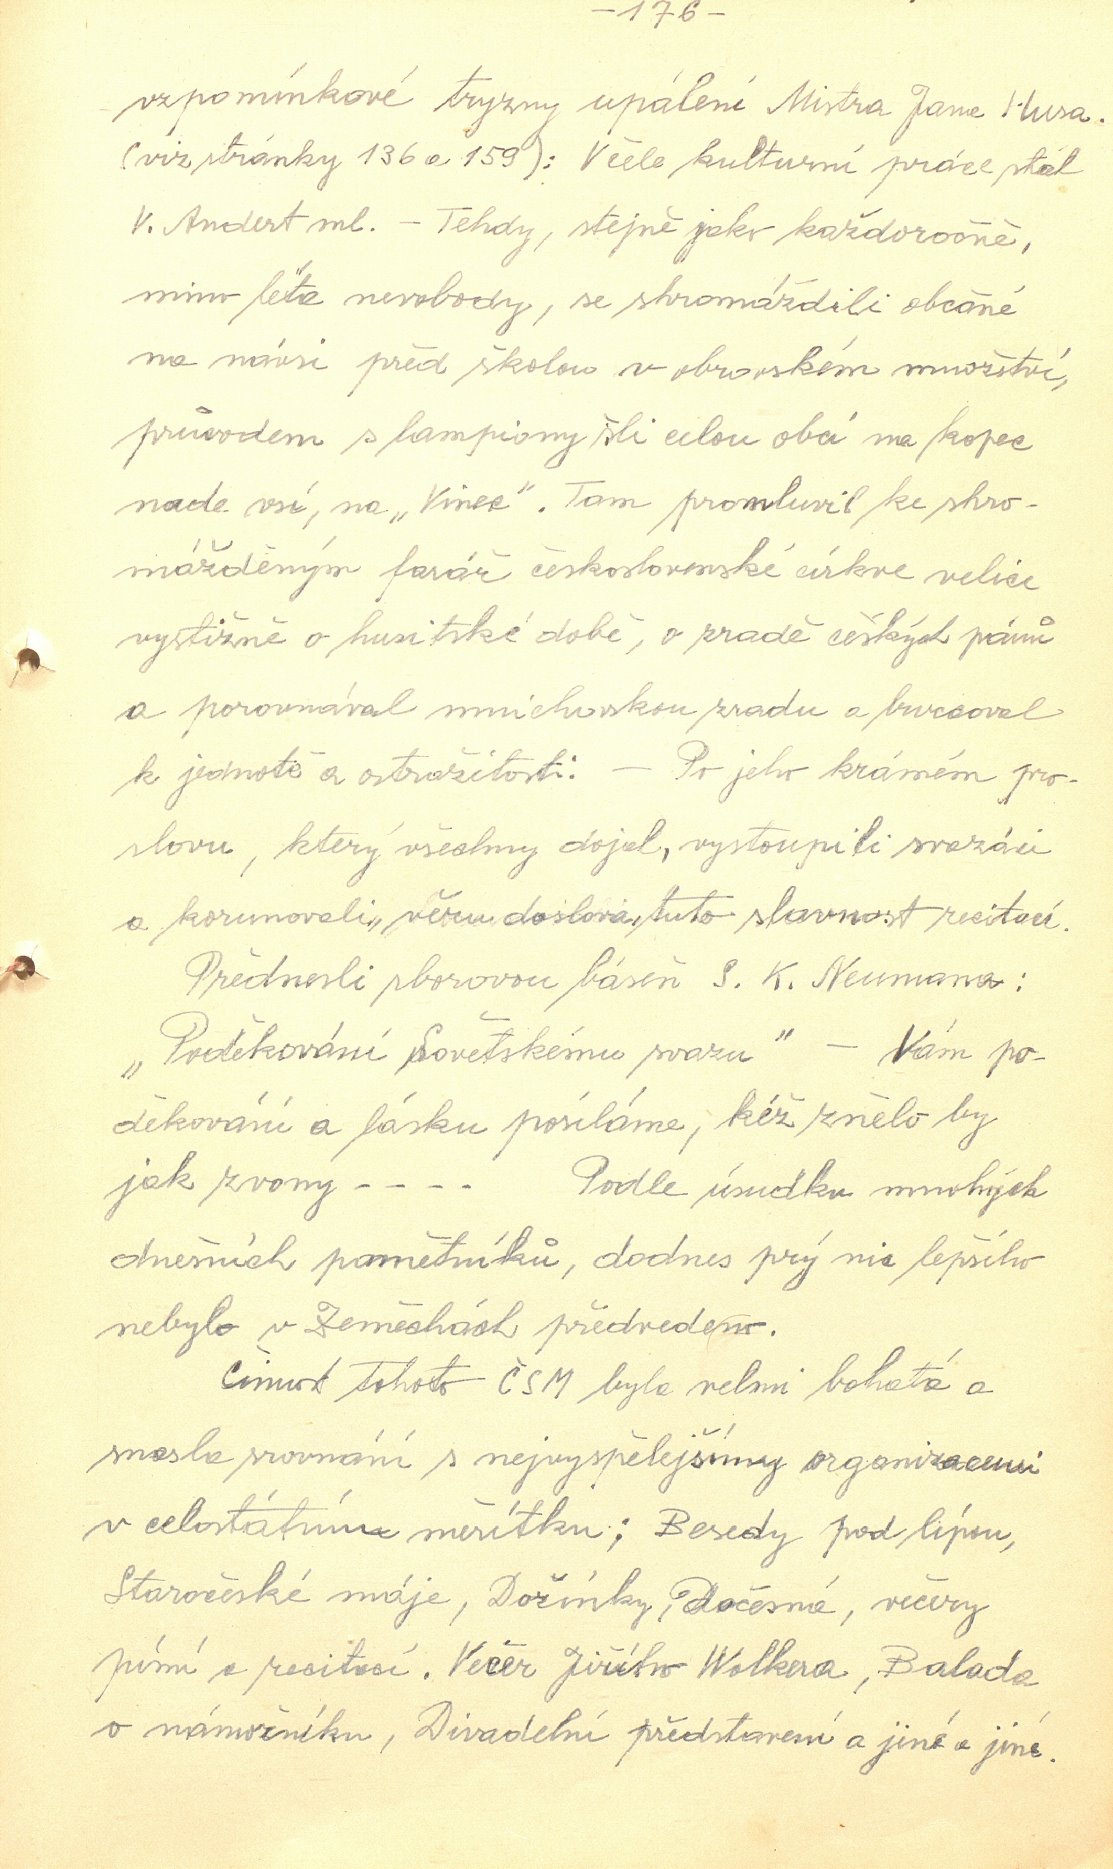 -176-
vzpomínkové tryzny upálení Mistra Jana Husa.
(viz stránky 136 a 159): V čele kulturní práce stál
V. Andert ml. - Tehdy, stejně jako každoročně,
mimo léta nesvobody, se shromáždili občané
na návsi před školou v obrovském množství,
průvodem s lampiony šli celou obcí na kopec
nade vsí, na „Vinec". Tam promluvil ke shro-
mážděným farář československé církve velice
vystižně o husitské době, o zradě českých pánů
a porovnával mnichovskou zradu a burcoval
k jednotě a ostražitosti: - Po jeho krásném pro-
slovu, který všechny dojal, vystoupili svazáci
a korunovali, věru doslova, tuto slavnost recitací.
Přednesli sborovou báseň S. K. Neumana:
„Poděkování Sovětskému svazu" - Vám po-
děkování a lásku posíláme, kéž znělo by
jak zvony - - - - Podle úsudku mnohých
dnešních pamětníků, dodnes prý nic lepšího
nebylo v Zeměchách předvedeno.
Činnost tohoto ČSM byla velmi bohatá a
snesla srovnání s nejvyspělejšímy organizacemi
v celostátním měřítku; Besedy pod lípou,
Staročeské máje, Dožínky, Dočesná, večery
písní a recitací. Večer Jiřího Wolkera, Balada
o námořníku, Divadelní představení a jiné a jiné.